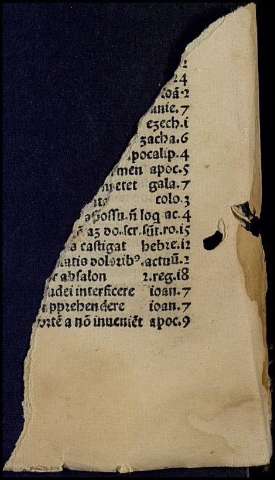 2
24
ioã.2
anie.7
ezech.i
zacha.6
pocalip.4
men apoc.5
metet gala.7
colo.3
possu. ñ loq ac.4
n aȝ do. scr. sũt. ro.15
a castigat hebre.12
tatis doloribꝰ. actuũ.2
absalon 2.reg.18
udei interficere ioan.7
apprehendere ioan.7
ortẽ a nõ inueniẽt apoc.9